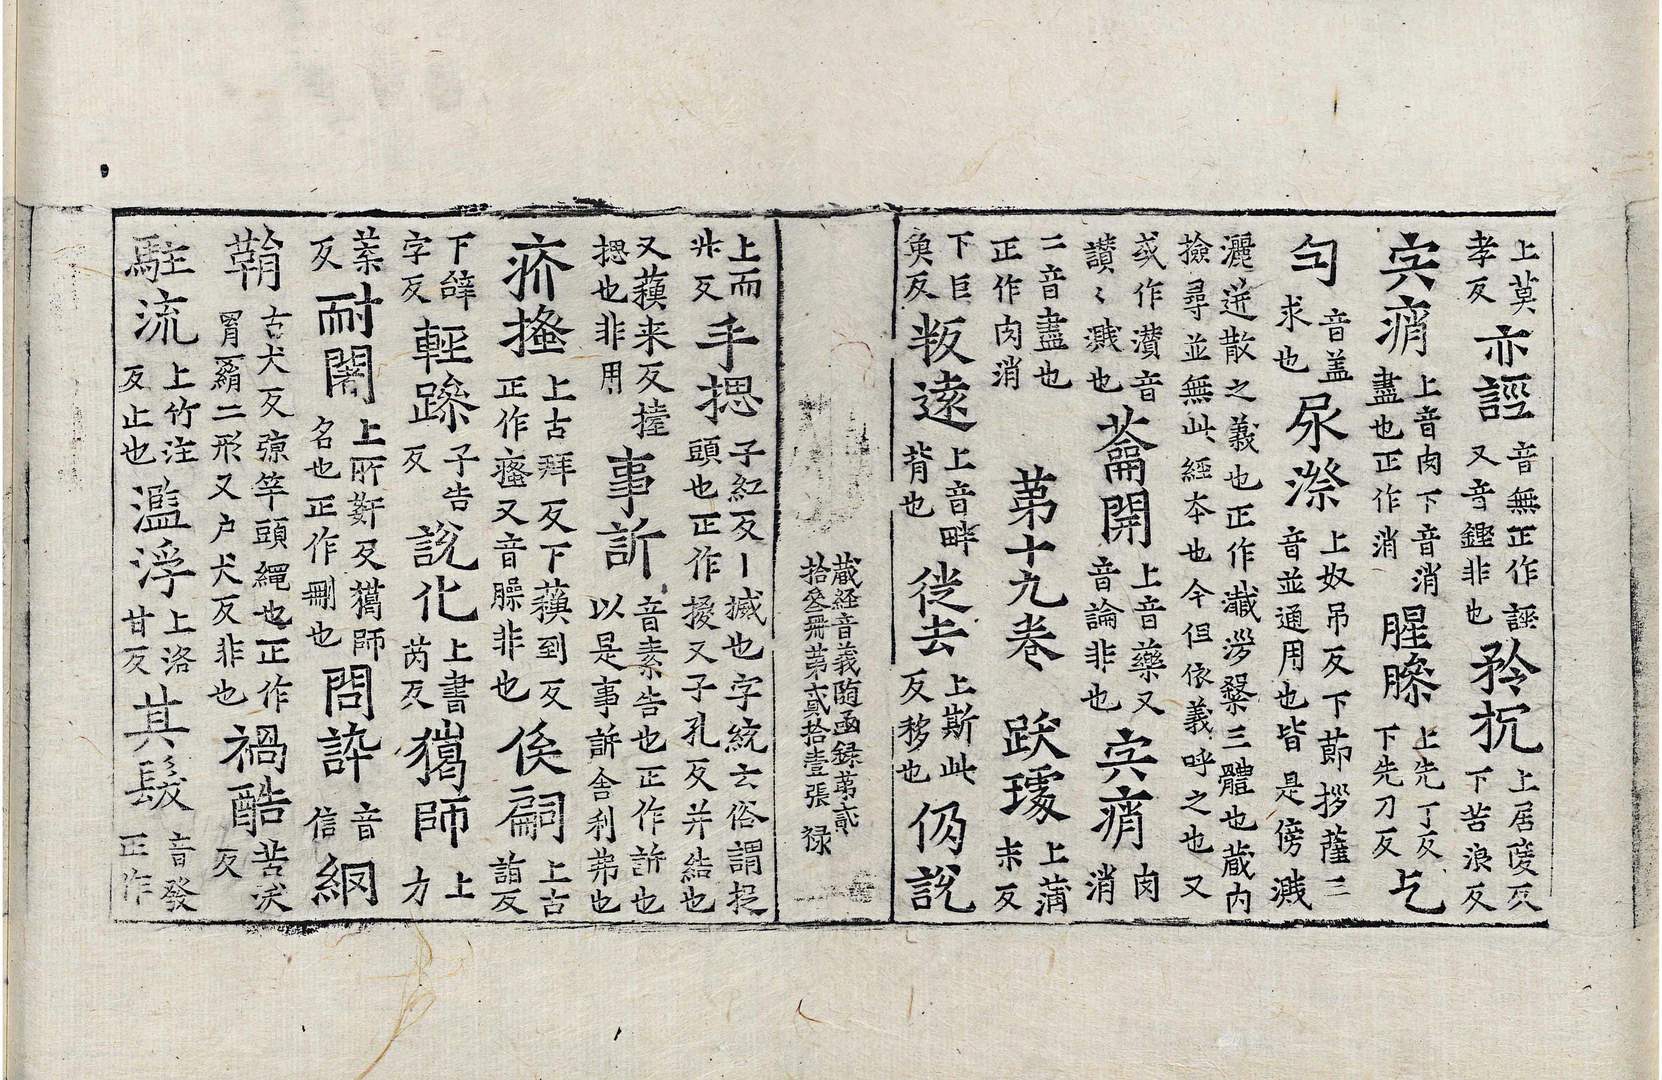 上莫孝反亦誙音無正作誣又音鏗非也矝抗上居陵反下苦浪反
宍痟上音肉下音消盡也正作消腥臊上先丁反下先刀反乞
匃音盖求也尿漈上奴吊反下節拶薩三音並通用也皆是傍濺
灑迸散之義也正作㶓㳨㯩三體也藏內撿尋並無此經本也今但依義呼之也又
或作灒音讃讃濺也蘥開上音藥又音論非也宍痟肉消
二音盡也正作肉消 第十九卷 跋璩上蒲末反
下巨魚反叛逺上音畔背也徙去上斯此反移也偽說
藏経音義随函録苐貳拾叁冊苐貳拾壹張 禄
上而非反手揌子紅反丨搣也字統云俗謂捉頭也正作搃又子孔反并結也
又蘓来反擡揌也非用事訢音素告也正作訴也以是事訴舍利弗也
疥搔上古拜反下蘓到反正作瘙又音臊非也俟嗣上古詣反
下辝字反輕躁子告反說化上書芮反獦師上方
羕反耐閙上所姧反獦師名也正作刪也問誶音信網
鞙古犬反弶竿頭繩也正作罥羂二形又戶犬反非也禍酷苦沃反
駐流上竹注反止也濫浮上洛甘反其髲音發正作